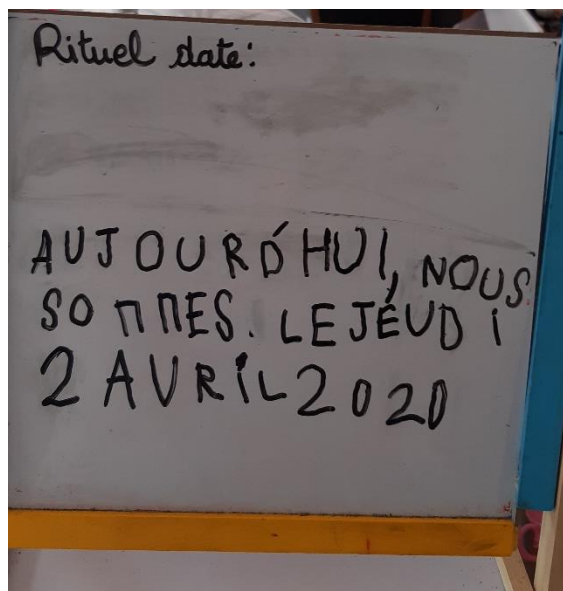 Rituel date:
AUJOURD'HUI, NOUS
SOMMES. LE JÉUDI
2 AVRIL 2020